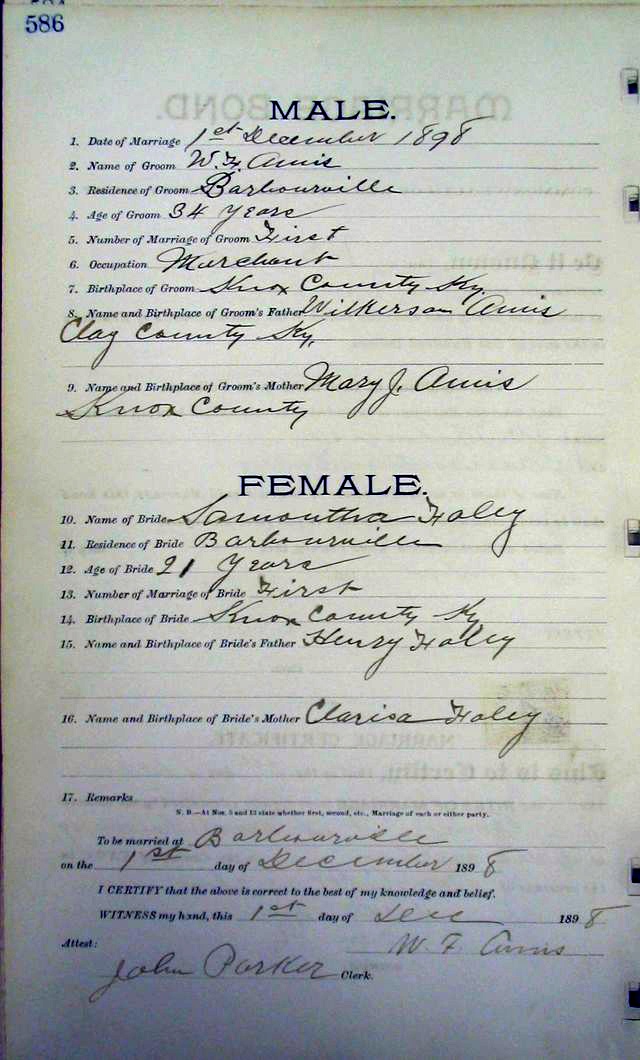 586
MALE.
1. Date of Marriage 1st December 1898
2. Name of Groom W. F. Amis
3. Residence of Groom Barbourville
4. Age of Groom 34 Years
5. Number of Marriage of Groom First
6. Occupation Merchant
7. Birthplace of Groom Knox County Ky.
8. Name and Birthplace of Groom's Father Wilkerson Amis
Clay County Ky.
9. Name and Birthplace of Groom's Mother Mary J. Amis
Knox County
FEMALE.
10. Name of Bride Samontha Foley
11. Residence of Bride Barbourville
12. Age of Bride 21 Years
13. Number of Marriage of Bride First
14. Birthplace of Bride Knox County Ky
15. Name and Birthplace of Bride's Father Henry Foley
16. Name and Birthplace of Bride's Mother Clarisa Foley
17. Remarks
N. B.—At Nos. 5 and 13 state whether first, second, etc., Marriage of each or either party.
To be married at Barbourville
on the 1st day of December 1898
I CERTIFY that the above is correct to the best of my knowledge and belief.
WITNESS my hand, this 1st day of Dec 1898
Attest: W. F. Amis
John Parker Clerk.